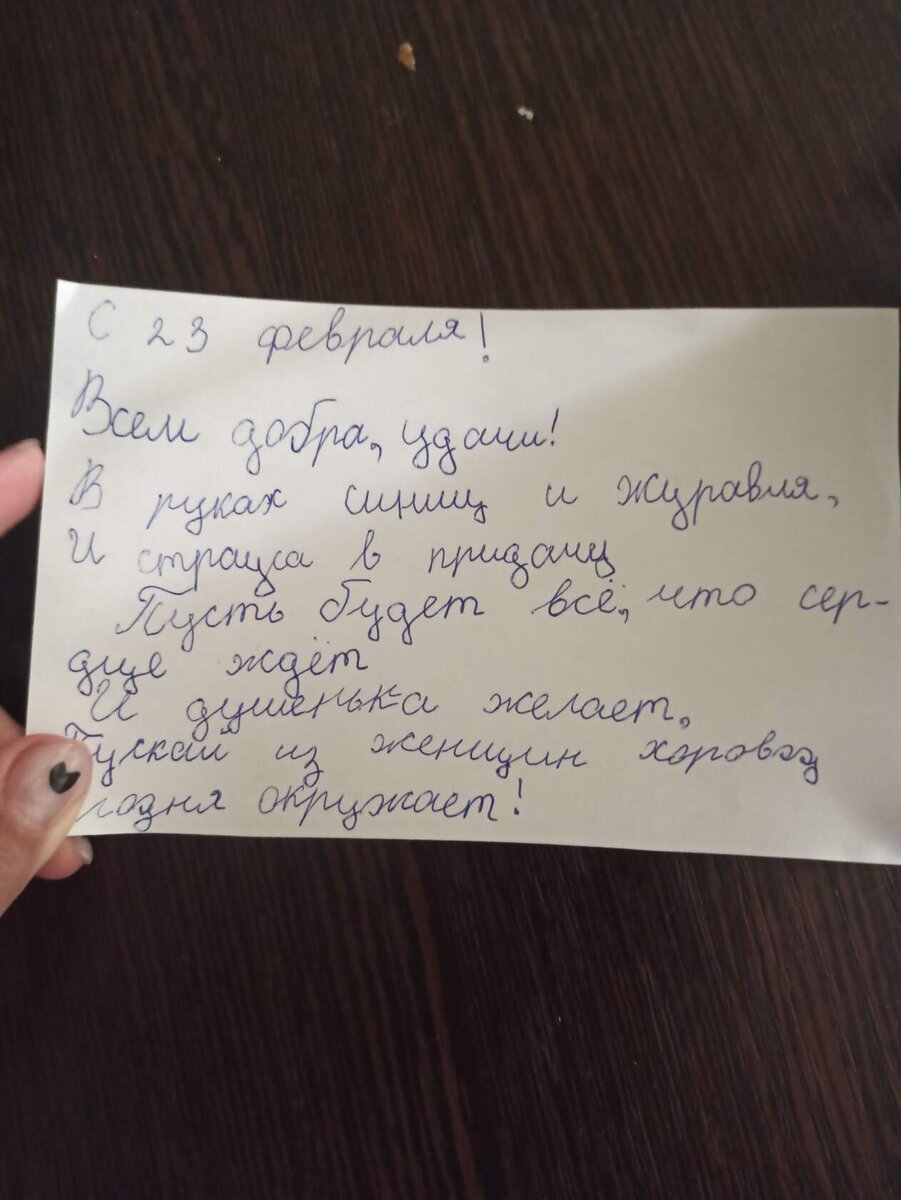 С 23 февраля!
Всем добра, удачи!
В руках синиц и журавля,
И страуса в придачу
Пусть будет всё, что сер-
дце ждёт
И душенька желает,
Пускай из женщин хоровод
окружает!